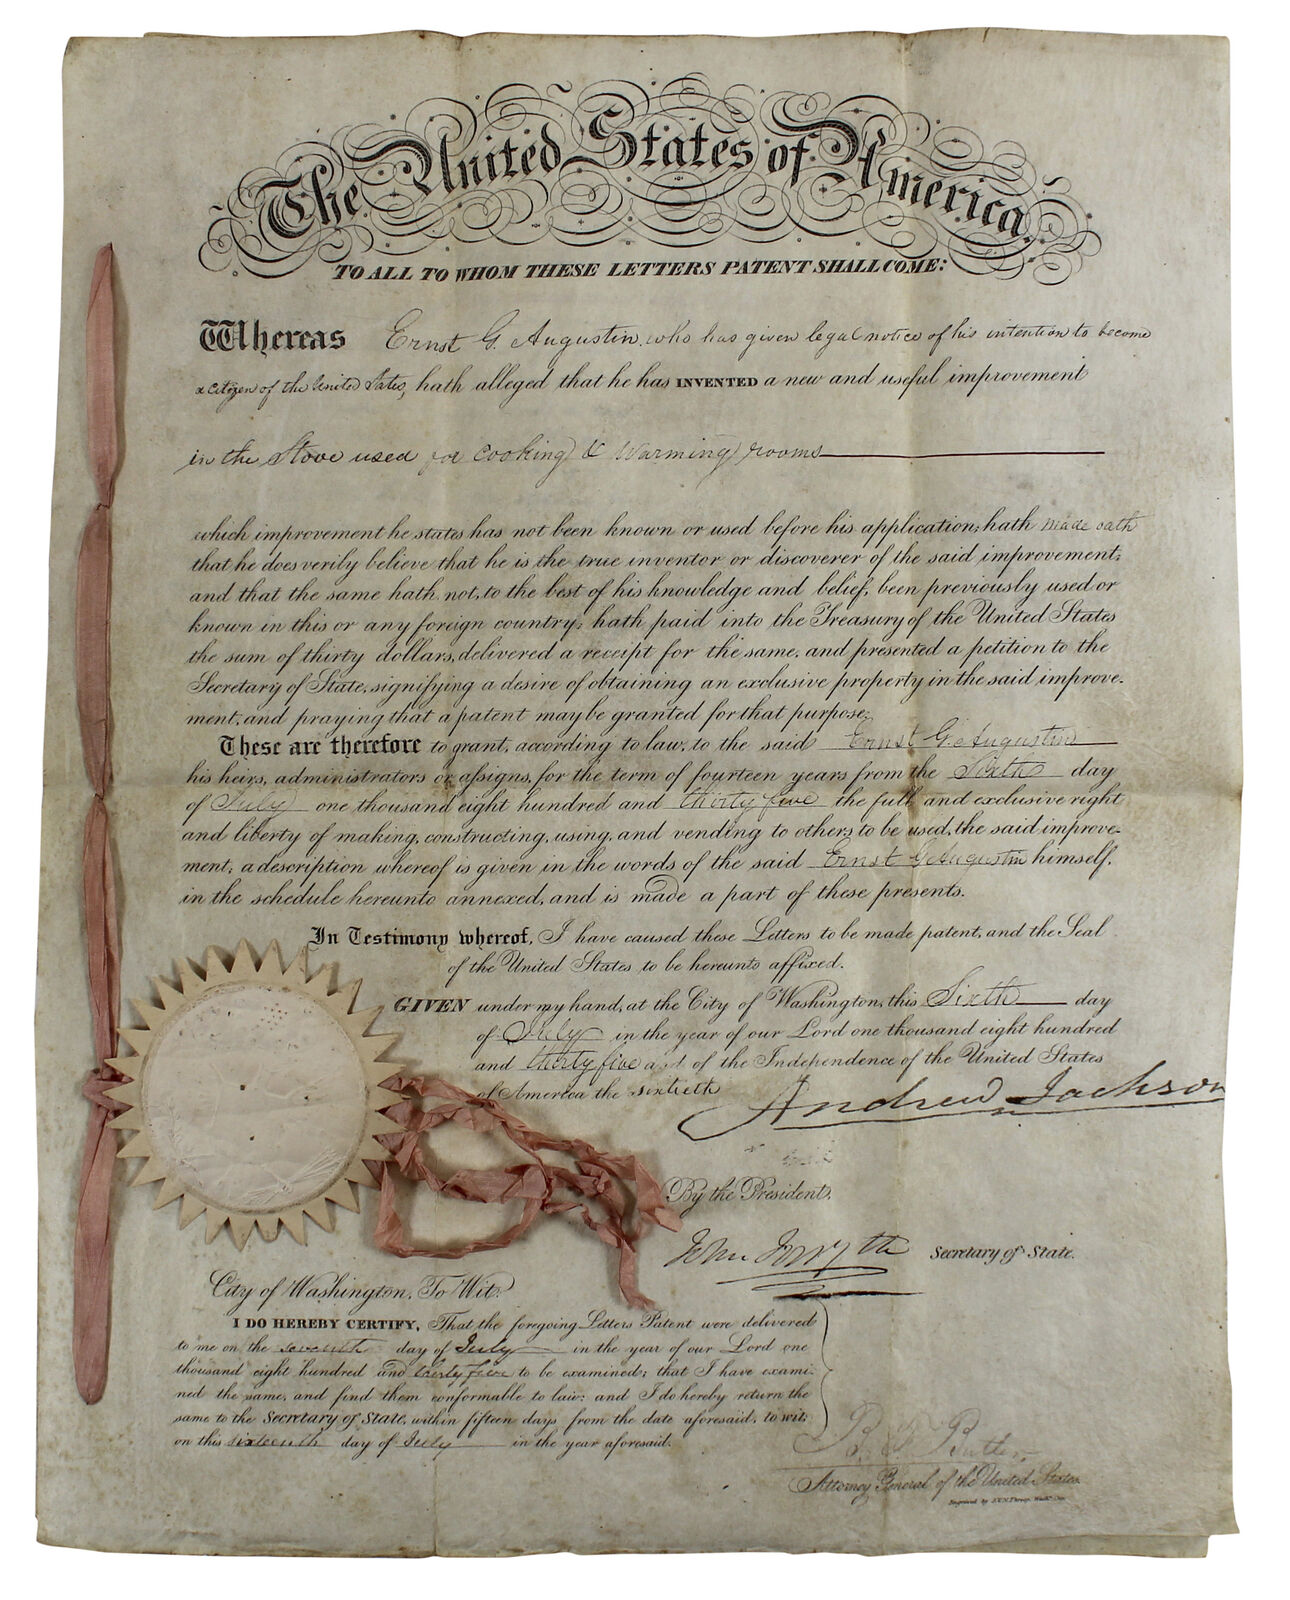 The United States of America,
TO ALL TO WHOM THESE LETTERS PATENT SHALL COME:
Whereas Ernst G. Augustin, who has given legal notice of his intention to become
a citizen of the United States, hath alleged that he has INVENTED a new and useful improvement
in the Stove used for cooking & warming rooms
which improvement he states has not been known or used before his application; hath made oath
that he does verily believe that he is the true inventor or discoverer of the said improvement;
and that the same hath not, to the best of his knowledge and belief, been previously used or
known in this or any foreign country; hath paid into the Treasury of the United States
the sum of thirty dollars, delivered a receipt for the same, and presented a petition to the
Secretary of State, signifying a desire of obtaining an exclusive property in the said improve-
ment, and praying that a patent may be granted for that purpose;
These are therefore to grant, according to law, to the said Ernst G. Augustin
his heirs, administrators or assigns, for the term of fourteen years from the Sixth day
of July one thousand eight hundred and thirty five the full and exclusive right
and liberty of making, constructing, using, and vending to others to be used, the said improve-
ment; a description whereof is given in the words of the said Ernst G. Augustin himself,
in the schedule hereunto annexed, and is made a part of these presents.
In Testimony whereof, I have caused these Letters to be made patent, and the Seal
of the United States to be hereunto affixed.
GIVEN under my hand, at the City of Washington, this Sixth day
of July in the year of our Lord one thousand eight hundred
and thirty five and of the Independence of the United States
of America the sixtieth
Andrew Jackson
By the President,
John Forsyth Secretary of State.
City of Washington, To Wit:
I DO HEREBY CERTIFY, That the foregoing Letters Patent were delivered
to me on the seventh day of July in the year of our Lord one
thousand eight hundred and thirty five to be examined; that I have exami-
ned the same, and find them conformable to law: and I do hereby return the
same to the Secretary of State, within fifteen days from the date aforesaid, to wit:
on this sixteenth day of July in the year aforesaid.
B. F. Butler,
Attorney General of the United States.
Engraved by